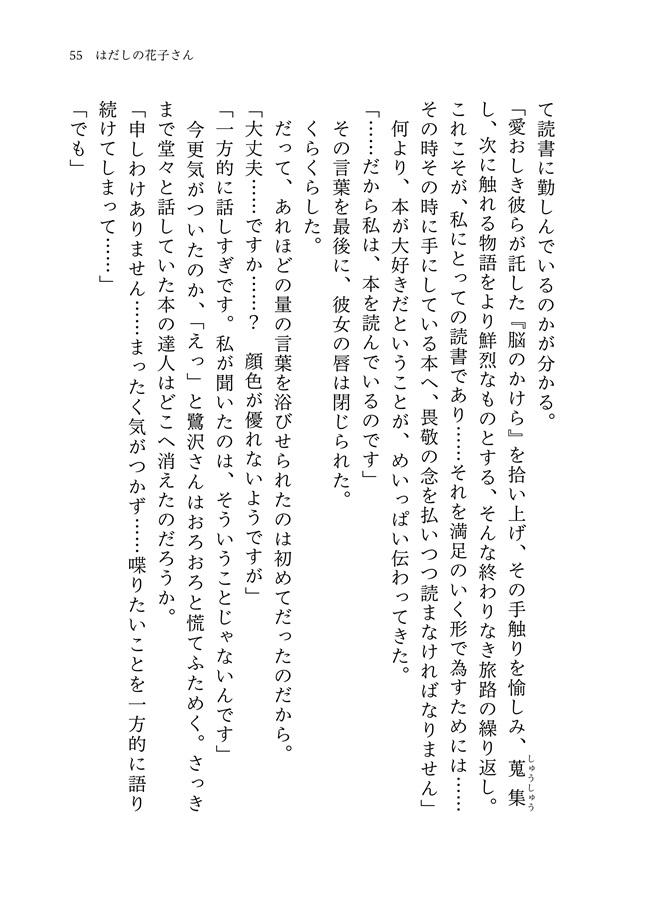 55　はだしの花子さん
て読書に勤しんでいるのかが分かる。
「愛おしき彼らが託した『脳のかけら』を拾い上げ、その手触りを愉しみ、蒐集
しゅうしゅう
し、次に触れる物語をより鮮烈なものとする、そんな終わりなき旅路の繰り返し。
これこそが、私にとっての読書であり……それを満足のいく形で為すためには……
その時その時に手にしている本へ、畏敬の念を払いつつ読まなければなりません」
何より、本が大好きだということが、めいっぱい伝わってきた。
「……だから私は、本を読んでいるのです」
その言葉を最後に、彼女の唇は閉じられた。
くらくらした。
だって、あれほどの量の言葉を浴びせられたのは初めてだったのだから。
「大丈夫……ですか……？　顔色が優れないようですが」
「一方的に話しすぎです。私が聞いたのは、そういうことじゃないんです」
今更気がついたのか、「えっ」と鷺沢さんはおろおろと慌てふためく。さっき
まで堂々と話していた本の達人はどこへ消えたのだろうか。
「申しわけありません……まったく気がつかず……喋りたいことを一方的に語り
続けてしまって……」
「でも」